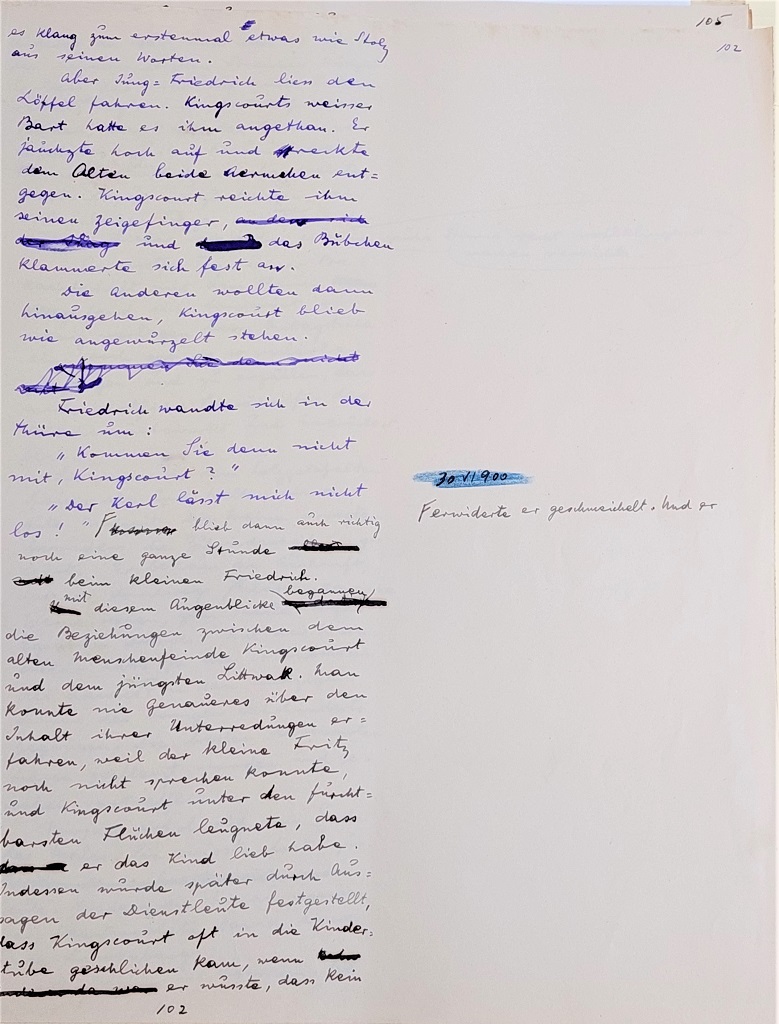 105
102
es klang zum erstenmal etwas wie Stolz
aus seinen Worten.
Aber Jung=Friedrich liess den
Löffel fahren. Kingscourts weisser
Bart hatte es ihm angethan. Er
jauchzte hoch auf und streckte
dem Alten beide Aermchen ent=
gegen. Kingscourt reichte ihm
seinen Zeigefinger, an dem sich
der und das Bübchen
klammerte sich fest an.
Die Anderen wollten dann
hinausgehen, Kingscourt blieb
wie angewurzelt stehen.
Sie denn nicht
Friedrich wandte sich in der
Thüre um:
„Kommen Sie denn nicht
mit, Kingscourt?"
„Der Kerl lässt mich nicht
los!" F blieb dann auch richtig
noch eine ganze Stunde
beim kleinen Friedrich.
mit diesem Augenblicke begannen
die Beziehungen zwischen dem
alten Menschenfeinde Kingscourt
und dem jüngsten Littwak. Man
konnte nie Genaueres über den
Inhalt ihrer Unterredungen er=
fahren, weil der kleine Fritz
noch nicht sprechen konnte,
und Kingscourt unter den furcht=
barsten Flüchen leugnete, dass
er das Kind lieb habe.
Indessen wurde später durch Aus=
sagen der Dienstleute festgestellt,
dass Kingscourt oft in die Kinder=
tube geschlichen kam, wenn
er wusste, dass kein
102
30 VI 900
F erwiderte er geschmeichelt. Und er